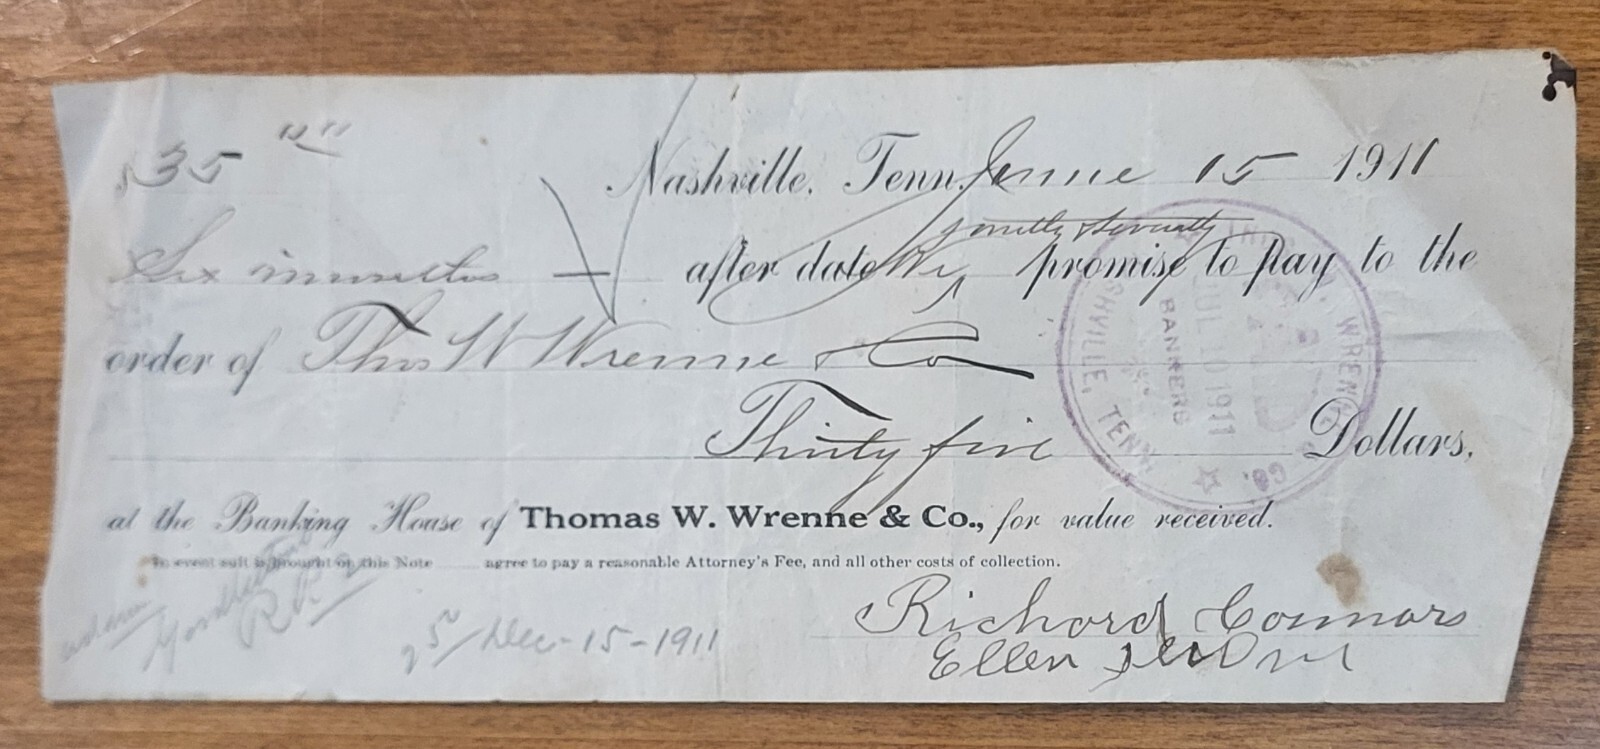 $35 00
Nashville, Tenn. June 15 1911
jointly & severally
Six months after date We promise to pay to the
order of Thos W Wrenne & Co
Thirty five Dollars,
at the Banking House of Thomas W. Wrenne & Co., for value received.
In event suit is brought on this Note agree to pay a reasonable Attorney's Fee, and all other costs of collection.
Richard Connors
Ellen
Dec-15-1911
WRENNE & CO.
BANKERS
JUL 10 1911
NASHVILLE, TENN.